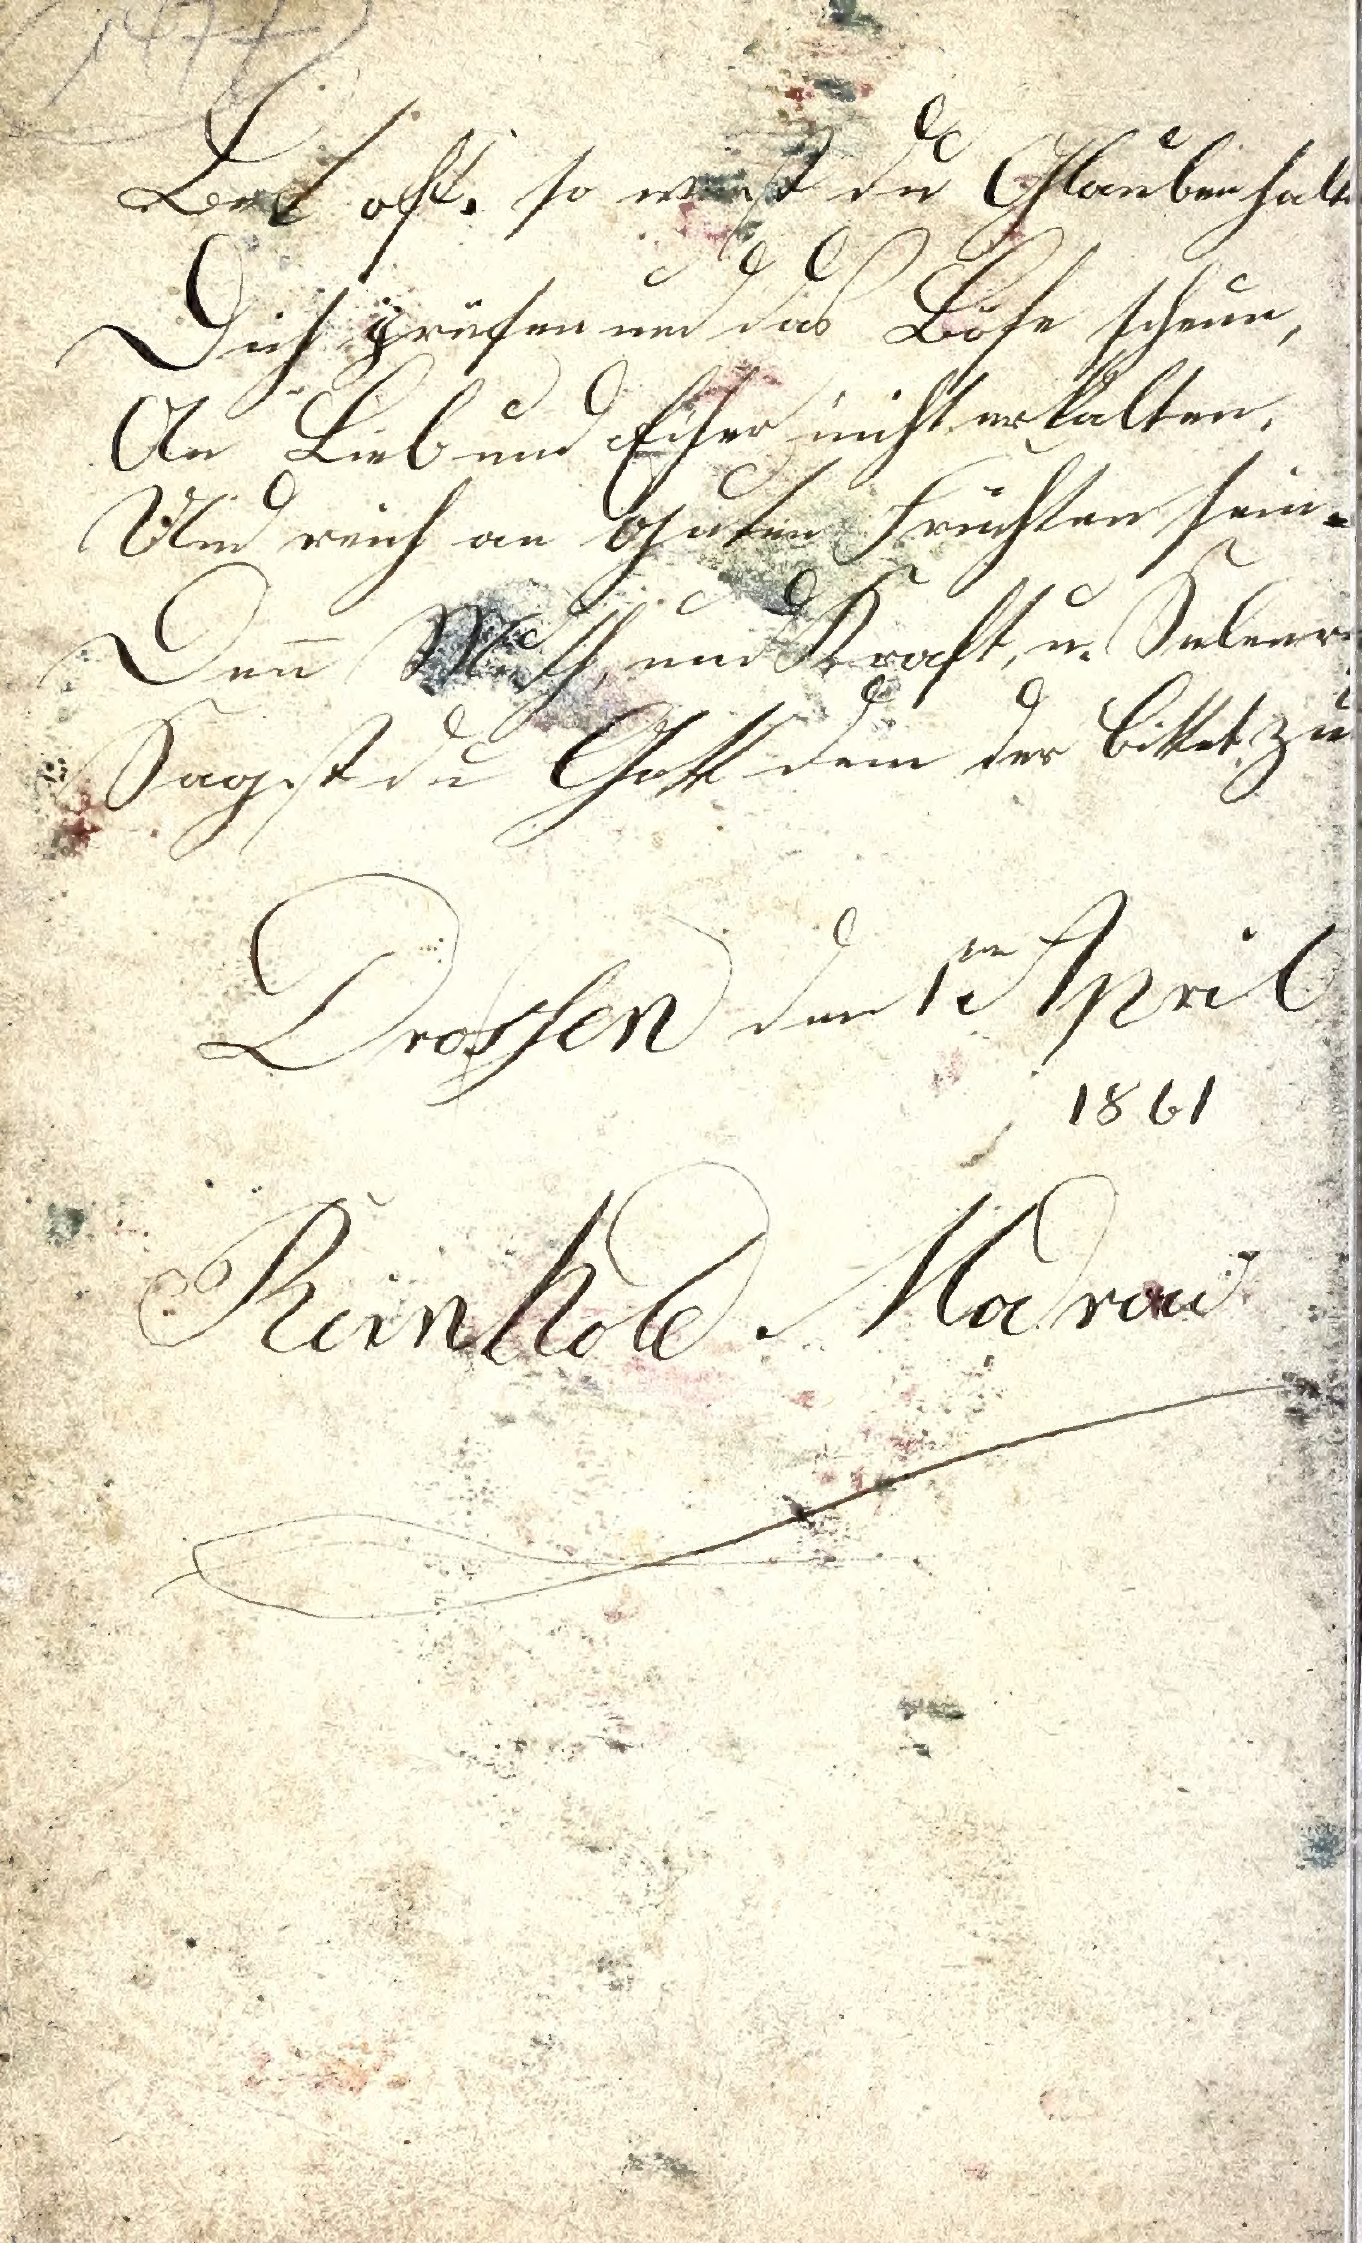 1877
Bet oft, so wirst du Glauben halt
Dich prüfen und das Böse scheun,
An Lieb und Eifer nicht erkalten,
Und reich an Guten Früchten sein.
Denn Muth, und Kraft, u. Seelenr
Sagst du Gott dem der bittet, zu
Drossen den 1ten April
1861
Reinhold. Madrau